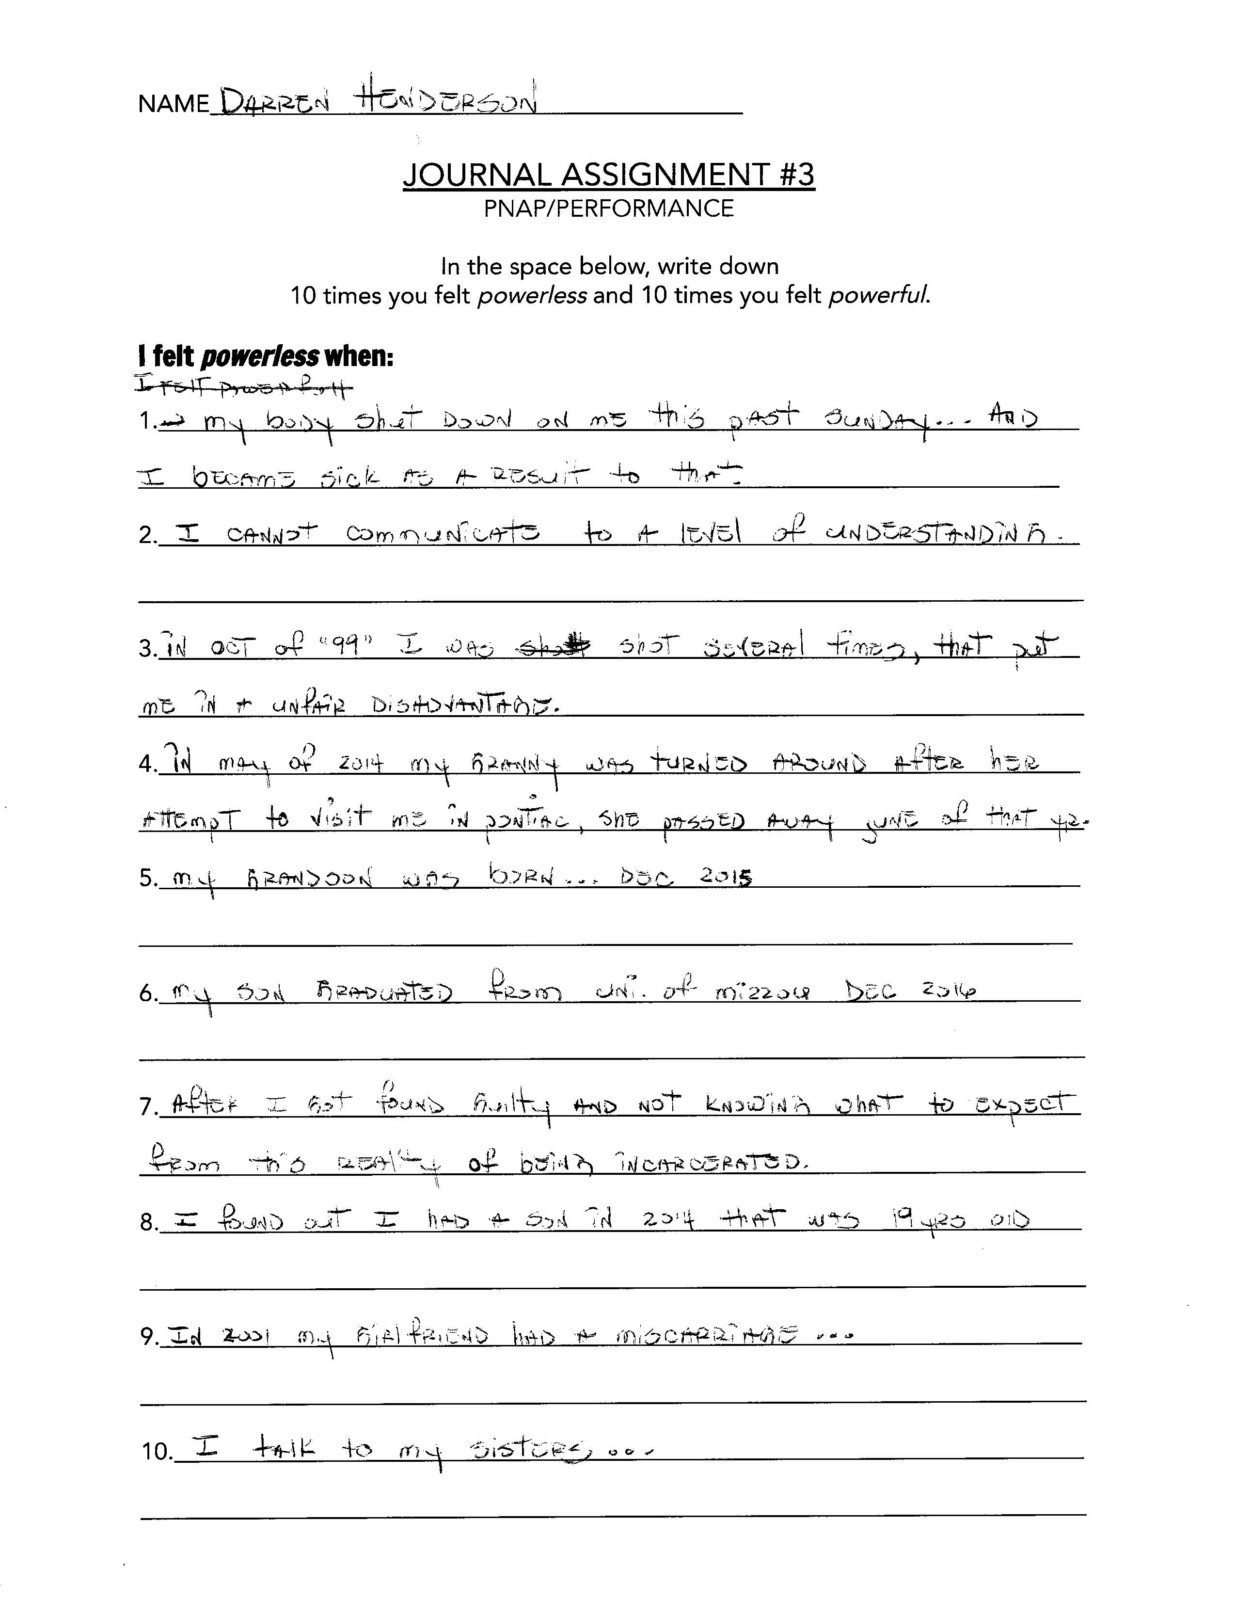 NAME DARREN HENDERSON
JOURNAL ASSIGNMENT #3
PNAP/PERFORMANCE
In the space below, write down
10 times you felt powerless and 10 times you felt powerful.
I felt powerless when:
I FELT POWER
1. my body shut DOWN ON ME this past SUNDAY... AND
I became sick as a RESULT to that.
2. I CANNOT COMMUNICATE to A lEVEl of UNDERSTANDING.
3. IN OCT of "99" I WAS shot SEVERAl times, that put
ME IN A UNfAIR DISADVANTAGE.
4. IN MAY of 2014 my GRANNY WAS TURNED AROUND After hER
ATTEMPT to visit ME IN PONTIAC, SHE PASSED AWAY JUNE of that YR.
5. my GRANDSON WAS bORN... DEC 2015
6. my SON GRADUATED from UNI. of mizzou DEC 2016
7. After I Got found Guilty AND NOT KNOWING what to EXPECT
from this REAlity of being INCARCERATED.
8. I found out I had A SON IN 2014 that was 19 yrs old
9. IN 2001 my GIRlfRIEND had A MISCARRIAGE ...
10. I talk to my SISTERS, ...